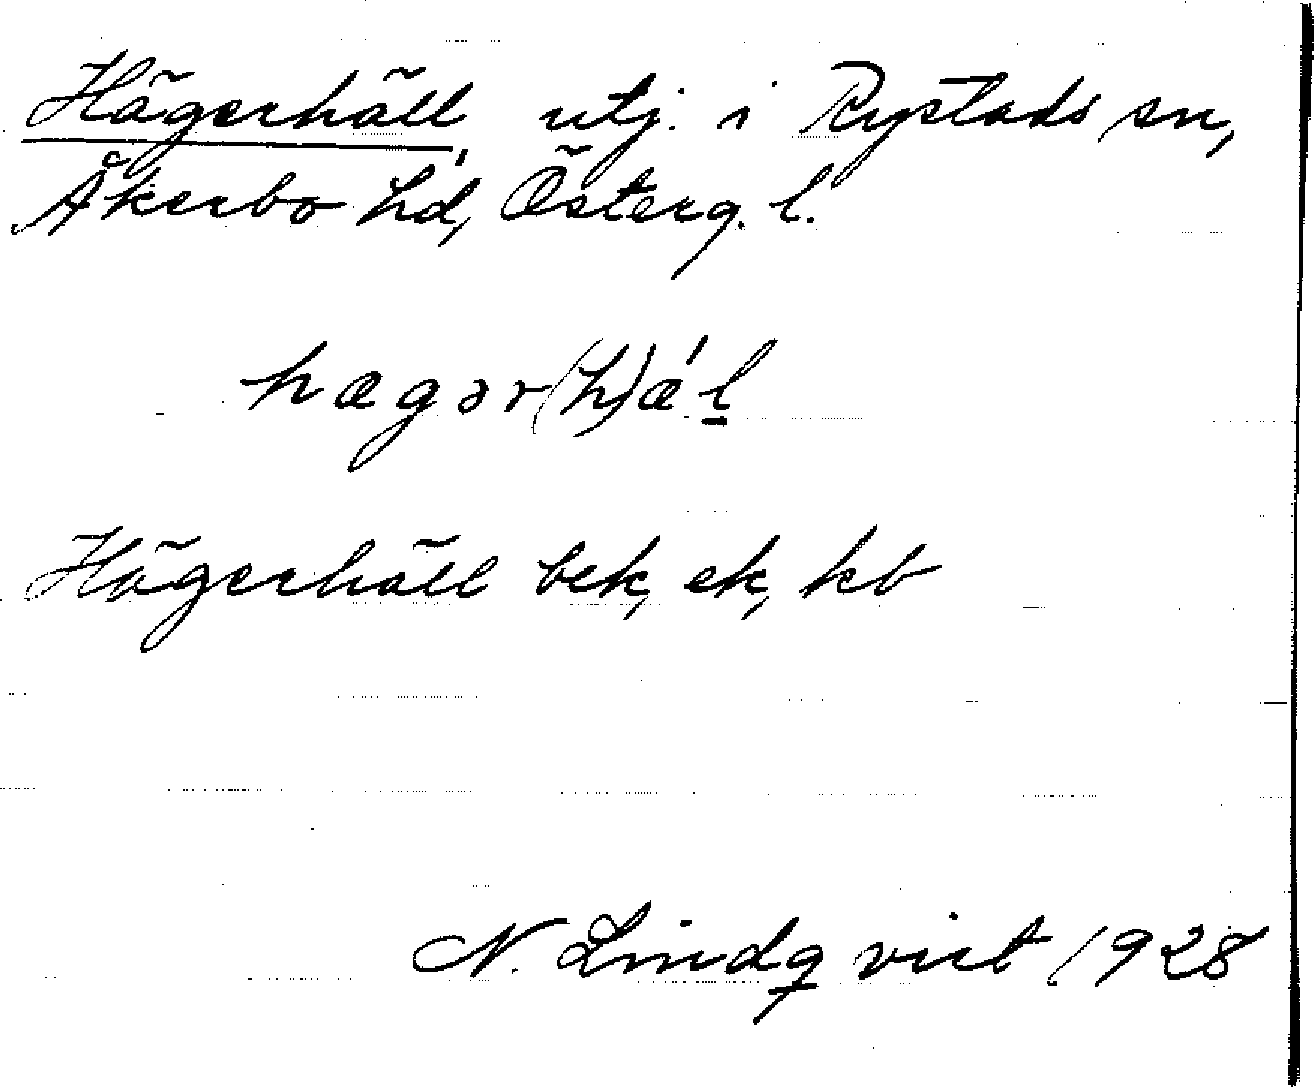 Hägerhäll, utj. i Rystads sn,
Åkerbo hd, Österg. l.
hægər(h)æ´l̲
Hägerhäll bek, ek, kb
N. Lindqvist 1928